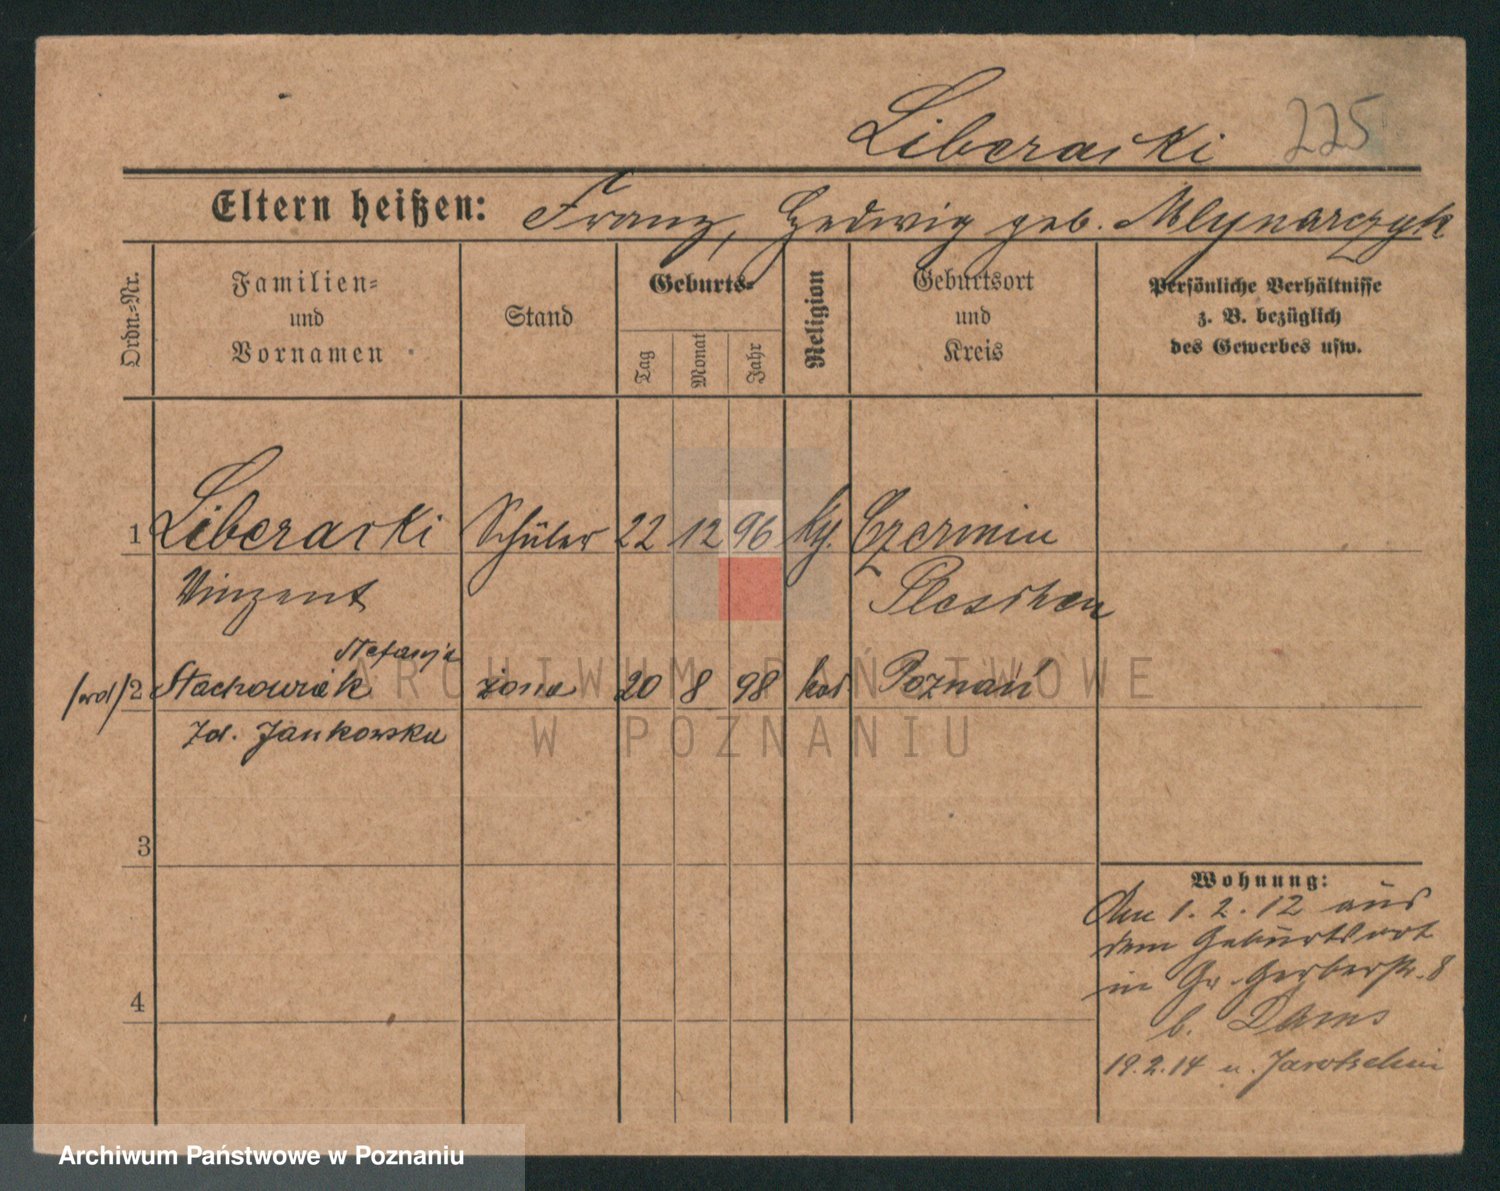 Liberaski 225
Eltern heißen: Franz, Hedwig geb. Mlynarczyk
Ordn.-Nr.
Familien- und Vornamen
Stand
Geburts-
Tag
Monat
Jahr
Religion
Geburtsort und Kreis
Persönliche Verhältnisse
z. B. bezüglich
des Gewerbes usw.
1 Liberaski Schüler 22 12 96 Czermin
Vinzent Pleschen
Stefanja
2 Stachowiak żona 20 8 98 kat Poznań
Zd. Jankowska
3
4
Wohnung:
Am 1. 2. 12 aus
dem Geburtsort
in Gr. Gerberstr. 8
b. Dams
19.2.14 n. Jarotschin
ARCHIWUM PAŃSTWOWE
W POZNANIU
Archiwum Państwowe w Poznaniu